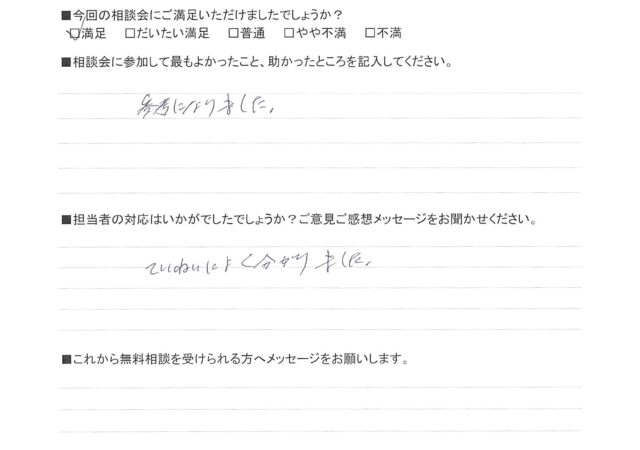 ■今回の相談会にご満足いただけましたでしょうか？
☑満足 □だいたい満足 □普通 □やや不満 □不満
■相談会に参加して最もよかったこと、助かったところを記入してください。
参考になりました。
■担当者の対応はいかがでしたでしょうか？ご意見ご感想メッセージをお聞かせください。
ていねいによく分かりました。
■これから無料相談を受けられる方へメッセージをお願いします。